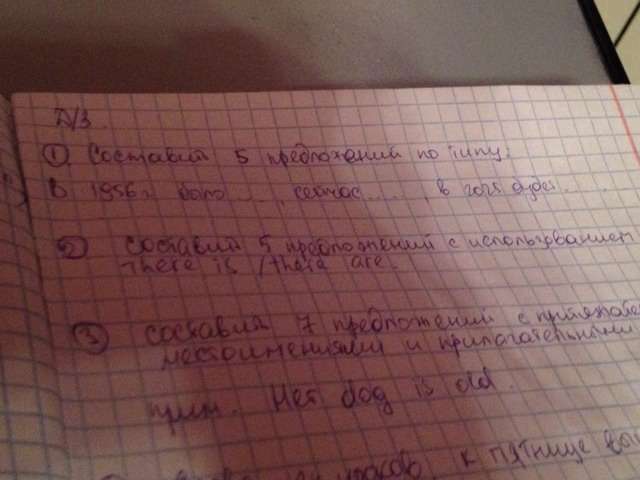 Д/З.
① Составий 5 предложений по типу:
В 1956г. было ... сейчас ...., в 2018 будет ....
② Составий 5 предложений с использованием
There is / there are.
③ Составий 7 предложений с притяжате
местоимениями и прилагательными
прим. Her dog is old.
к пятнице